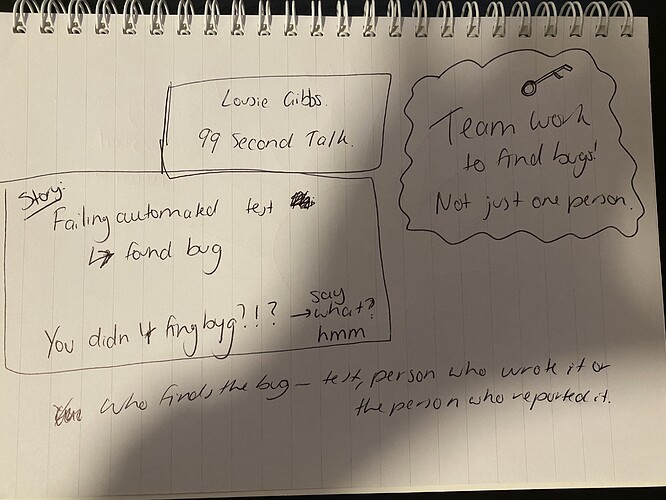 Lousie Gibbs.
99 Second Talk.
Team work
to find bugs!
Not just one person.
Story:
Failing automated test
↳ found bug
You didn't fing byg?!? → say
what?
hmm
Who finds the bug – test, person who wrote it or
the person who reported it.